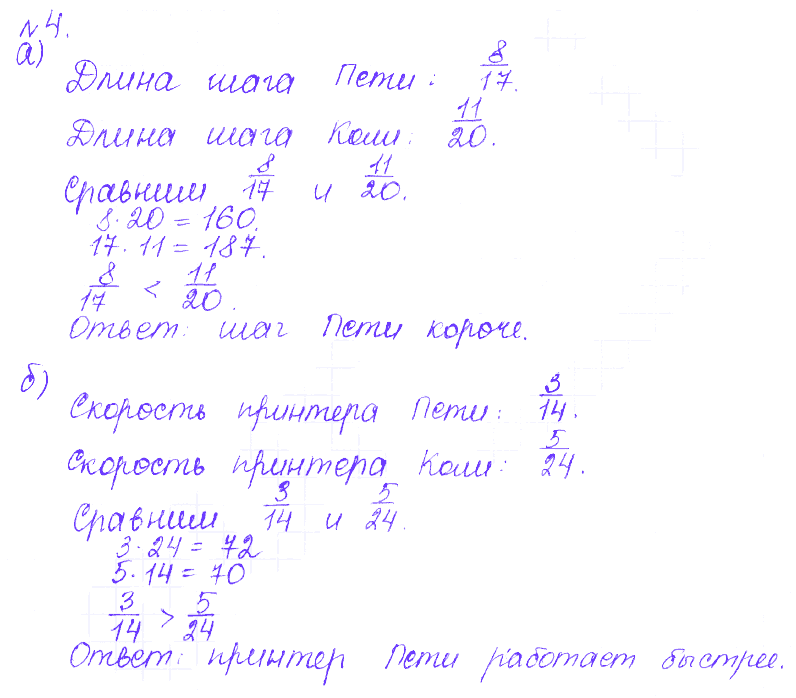 №4.
а)
Длина шага Пети: 8/17.
Длина шага Коли: 11/20.
Сравним 8/17 и 11/20.
8·20 = 160.
17·11 = 187.
8/17 < 11/20.
Ответ: шаг Пети короче.
б)
Скорость принтера Пети: 3/14.
Скорость принтера Коли: 5/24.
Сравним 3/14 и 5/24.
3·24 = 72
5·14 = 70
3/14 > 5/24
Ответ: принтер Пети работает быстрее.